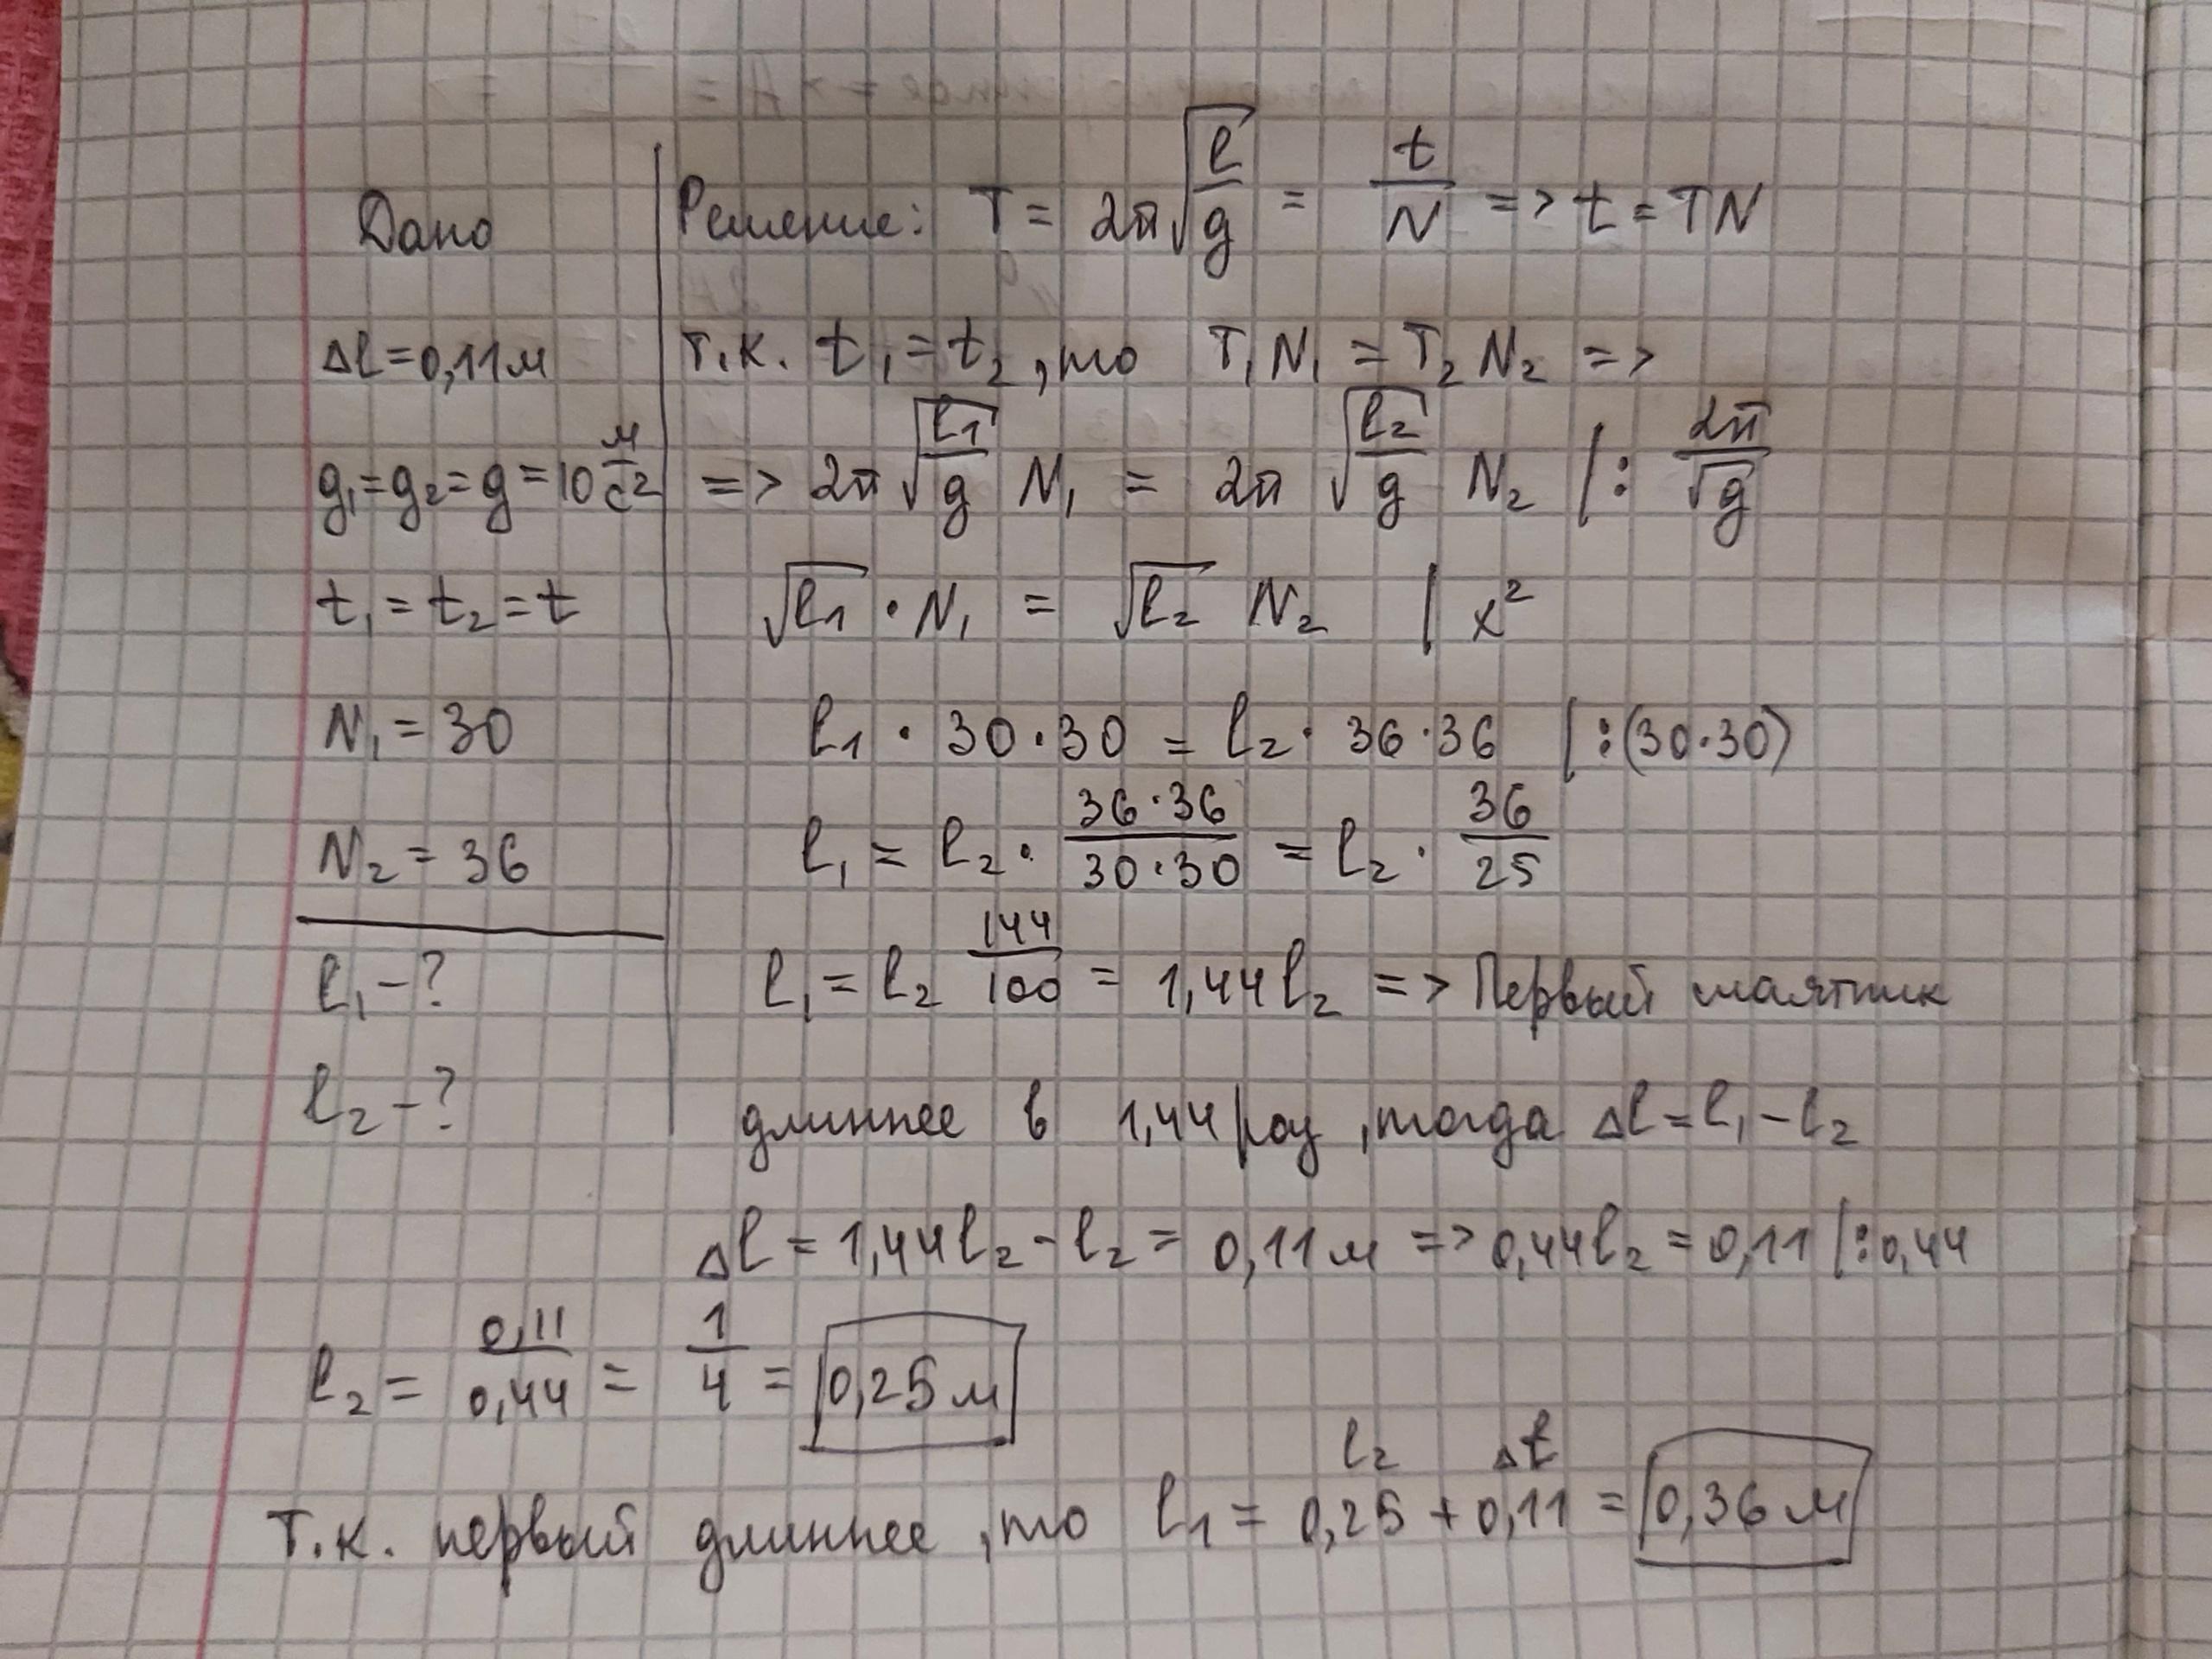 Дано
Δl = 0,11 м
g₁ = g₂ = g = 10 м/с²
t₁ = t₂ = t
N₁ = 30
N₂ = 36
l₁ - ?
l₂ - ?
Решение: T = 2π√(l/g) = t/N => t = TN
т.к. t₁ = t₂, то T₁N₁ = T₂N₂ =>
=> 2π√(l₁/g) N₁ = 2π√(l₂/g) N₂ | : 2π/√g
√l₁ · N₁ = √l₂ N₂ | x²
l₁ · 30 · 30 = l₂ · 36 · 36 | : (30·30)
l₁ = l₂ · (36·36)/(30·30) = l₂ · 36/25
l₁ = l₂ 144/100 = 1,44 l₂ => Первый маятник
длиннее в 1,44 раз, тогда Δl = l₁ - l₂
Δl = 1,44 l₂ - l₂ = 0,11 м => 0,44 l₂ = 0,11 | : 0,44
l₂ = 0,11/0,44 = 1/4 = 0,25 м
l₂ Δl
Т.к. первый длиннее, то l₁ = 0,25 + 0,11 = 0,36 м